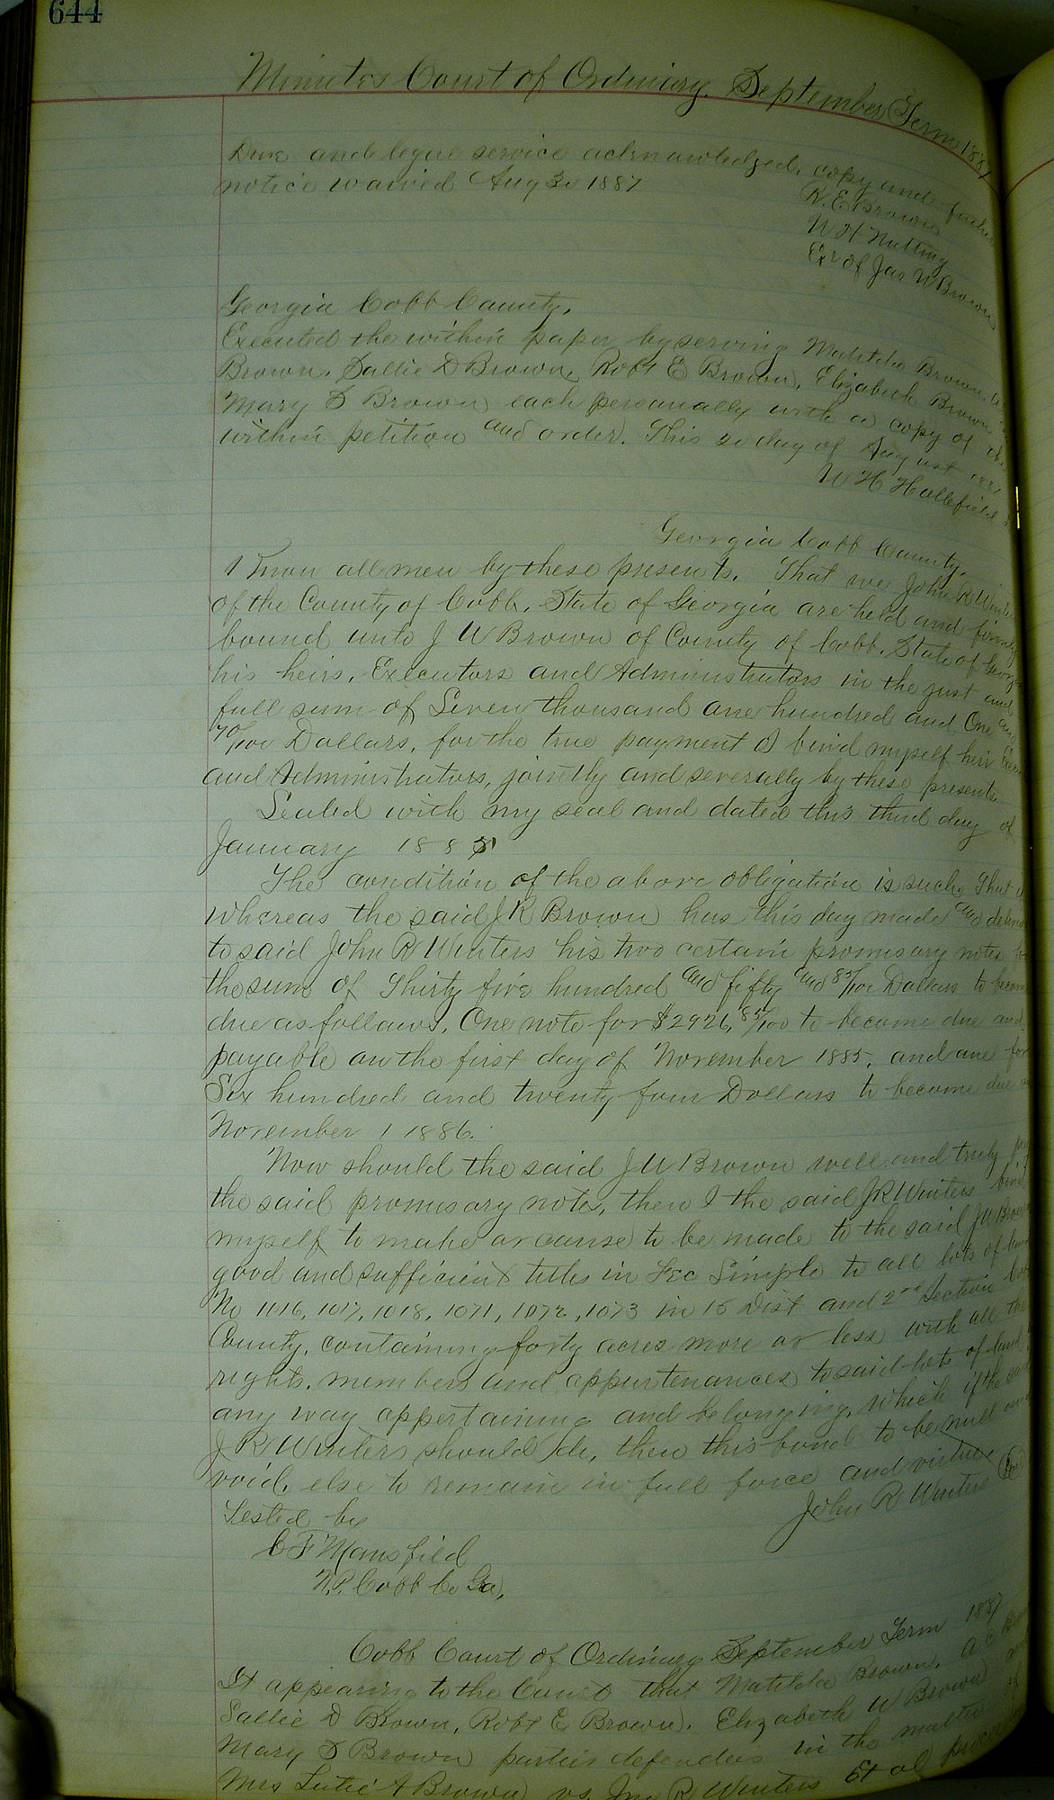 644
Minutes Court of Ordinary September Term 1887
Due and legal service acknowledged, copy and further
notice waived Aug 30 1887
R. E. Brown
W H Nutting
Exr of Jas W Brown
Georgia Cobb County,
Executed the within paper by serving Matilda Brown,
Brown, Sallie D Brown, Robt E Brown, Elizabeth Brown
Mary S Brown each personally with a copy of the
within petition and order. This 20 day of August 1887
W H Hallefield
Georgia Cobb County,
Know all men by these presents. That we John R Winters
of the County of Cobb, State of Georgia are held and firmly
bound unto J W Brown of County of Cobb, State of Georgia
his heirs, Executors and Administrators in the just and
full sum of Seven thousand one hundred and One and
70/100 Dollars, for the true payment I bind myself heirs
and Administrators, jointly and severally by these presents
Sealed with my seal and dated this third day of
January 1885
The condition of the above obligation is such, That
whereas the said J R Brown has this day made and
to said John R Winters his two certain promisary notes
the sum of Thirty five hundred and fifty and 85/100 Dollars to become
due as follows, One note for $2926, 85/100 to become due and
payable on the first day of November 1885, and one for
Six hundred and twenty four Dollars to become due
November 1 1886.
Now should the said J W Brown well and truly pay
the said promisary notes, then I the said J R Winters bind
myself to make or cause to be made to the said J W Brown
good and sufficient titles in Fee Simple to all lots of land
No 1016, 1017, 1018, 1071, 1072, 1073 in 16 Dist and 2nd Section
County, containing forty acres more or less with all the
rights, members and appurtenances to said lots of land
any way appertaining and belonging, which if the said
J R Winters should do, then this bond to be null and
void, else to remain in full force and virtue
John R Winters
Tested by
C F Mansfield
N.P. Cobb Co Ga,
Cobb Court of Ordinary September Term 1887
It appearing to the Court that Matilda Brown, A C
Sallie D Brown, Robt E Brown, Elizabeth W Brown
Mary S Brown parties defenders in the matter of
Mrs Lutie A Brown vs. Jno R Winters Et al